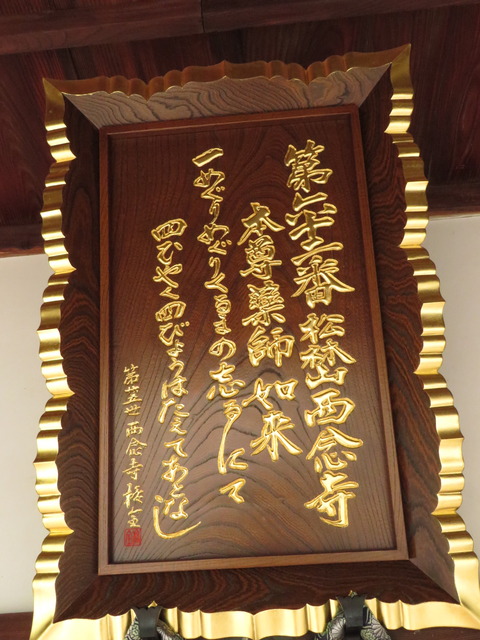 第六十二番 松林山西念寺
本尊薬師如来
一めぐりめぐりくるまの志るしにて
四ひやく四びょうはたえてあとなし
第廿五世 西念寺